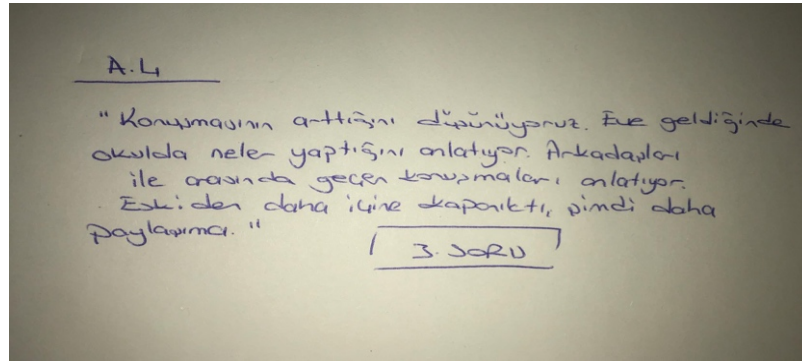 A.4
"Konuşmasının arttığını düşünüyoruz. Eve geldiğinde
okulda neler yaptığını anlatıyor. Arkadaşları
ile arasında geçen konuşmaları anlatıyor.
Eskiden daha içine kapanıktı, şimdi daha
paylaşımcı."
3. SORU